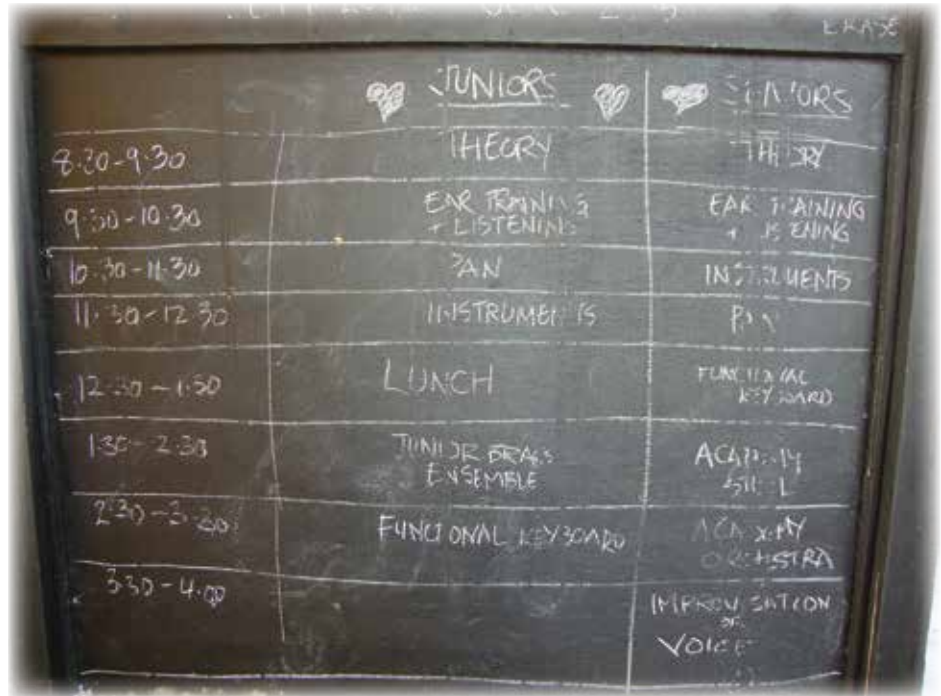 ERASE
JUNIORS SENIORS
8:20-9:30 THEORY THEORY
9:30-10:30 EAR TRAINING EAR TRAINING
+ LISTENING + LISTENING
10:30-11:30 PAN INSTRUMENTS
11:30-12:30 INSTRUMENTS PAN
12:30-1:30 LUNCH FUNCTIONAL
KEYBOARD
1:30-2:30 JUNIOR BRASS ACADEMY
ENSEMBLE
2:30-3:30 FUNCTIONAL KEYBOARD ACADEMY
ORCHESTRA
3:30-4:00 IMPROVISATION
OR
VOICE